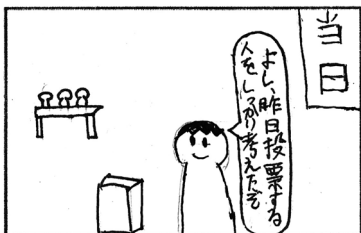 当日
よし、昨日投票する
人をしっかり考えたぞ